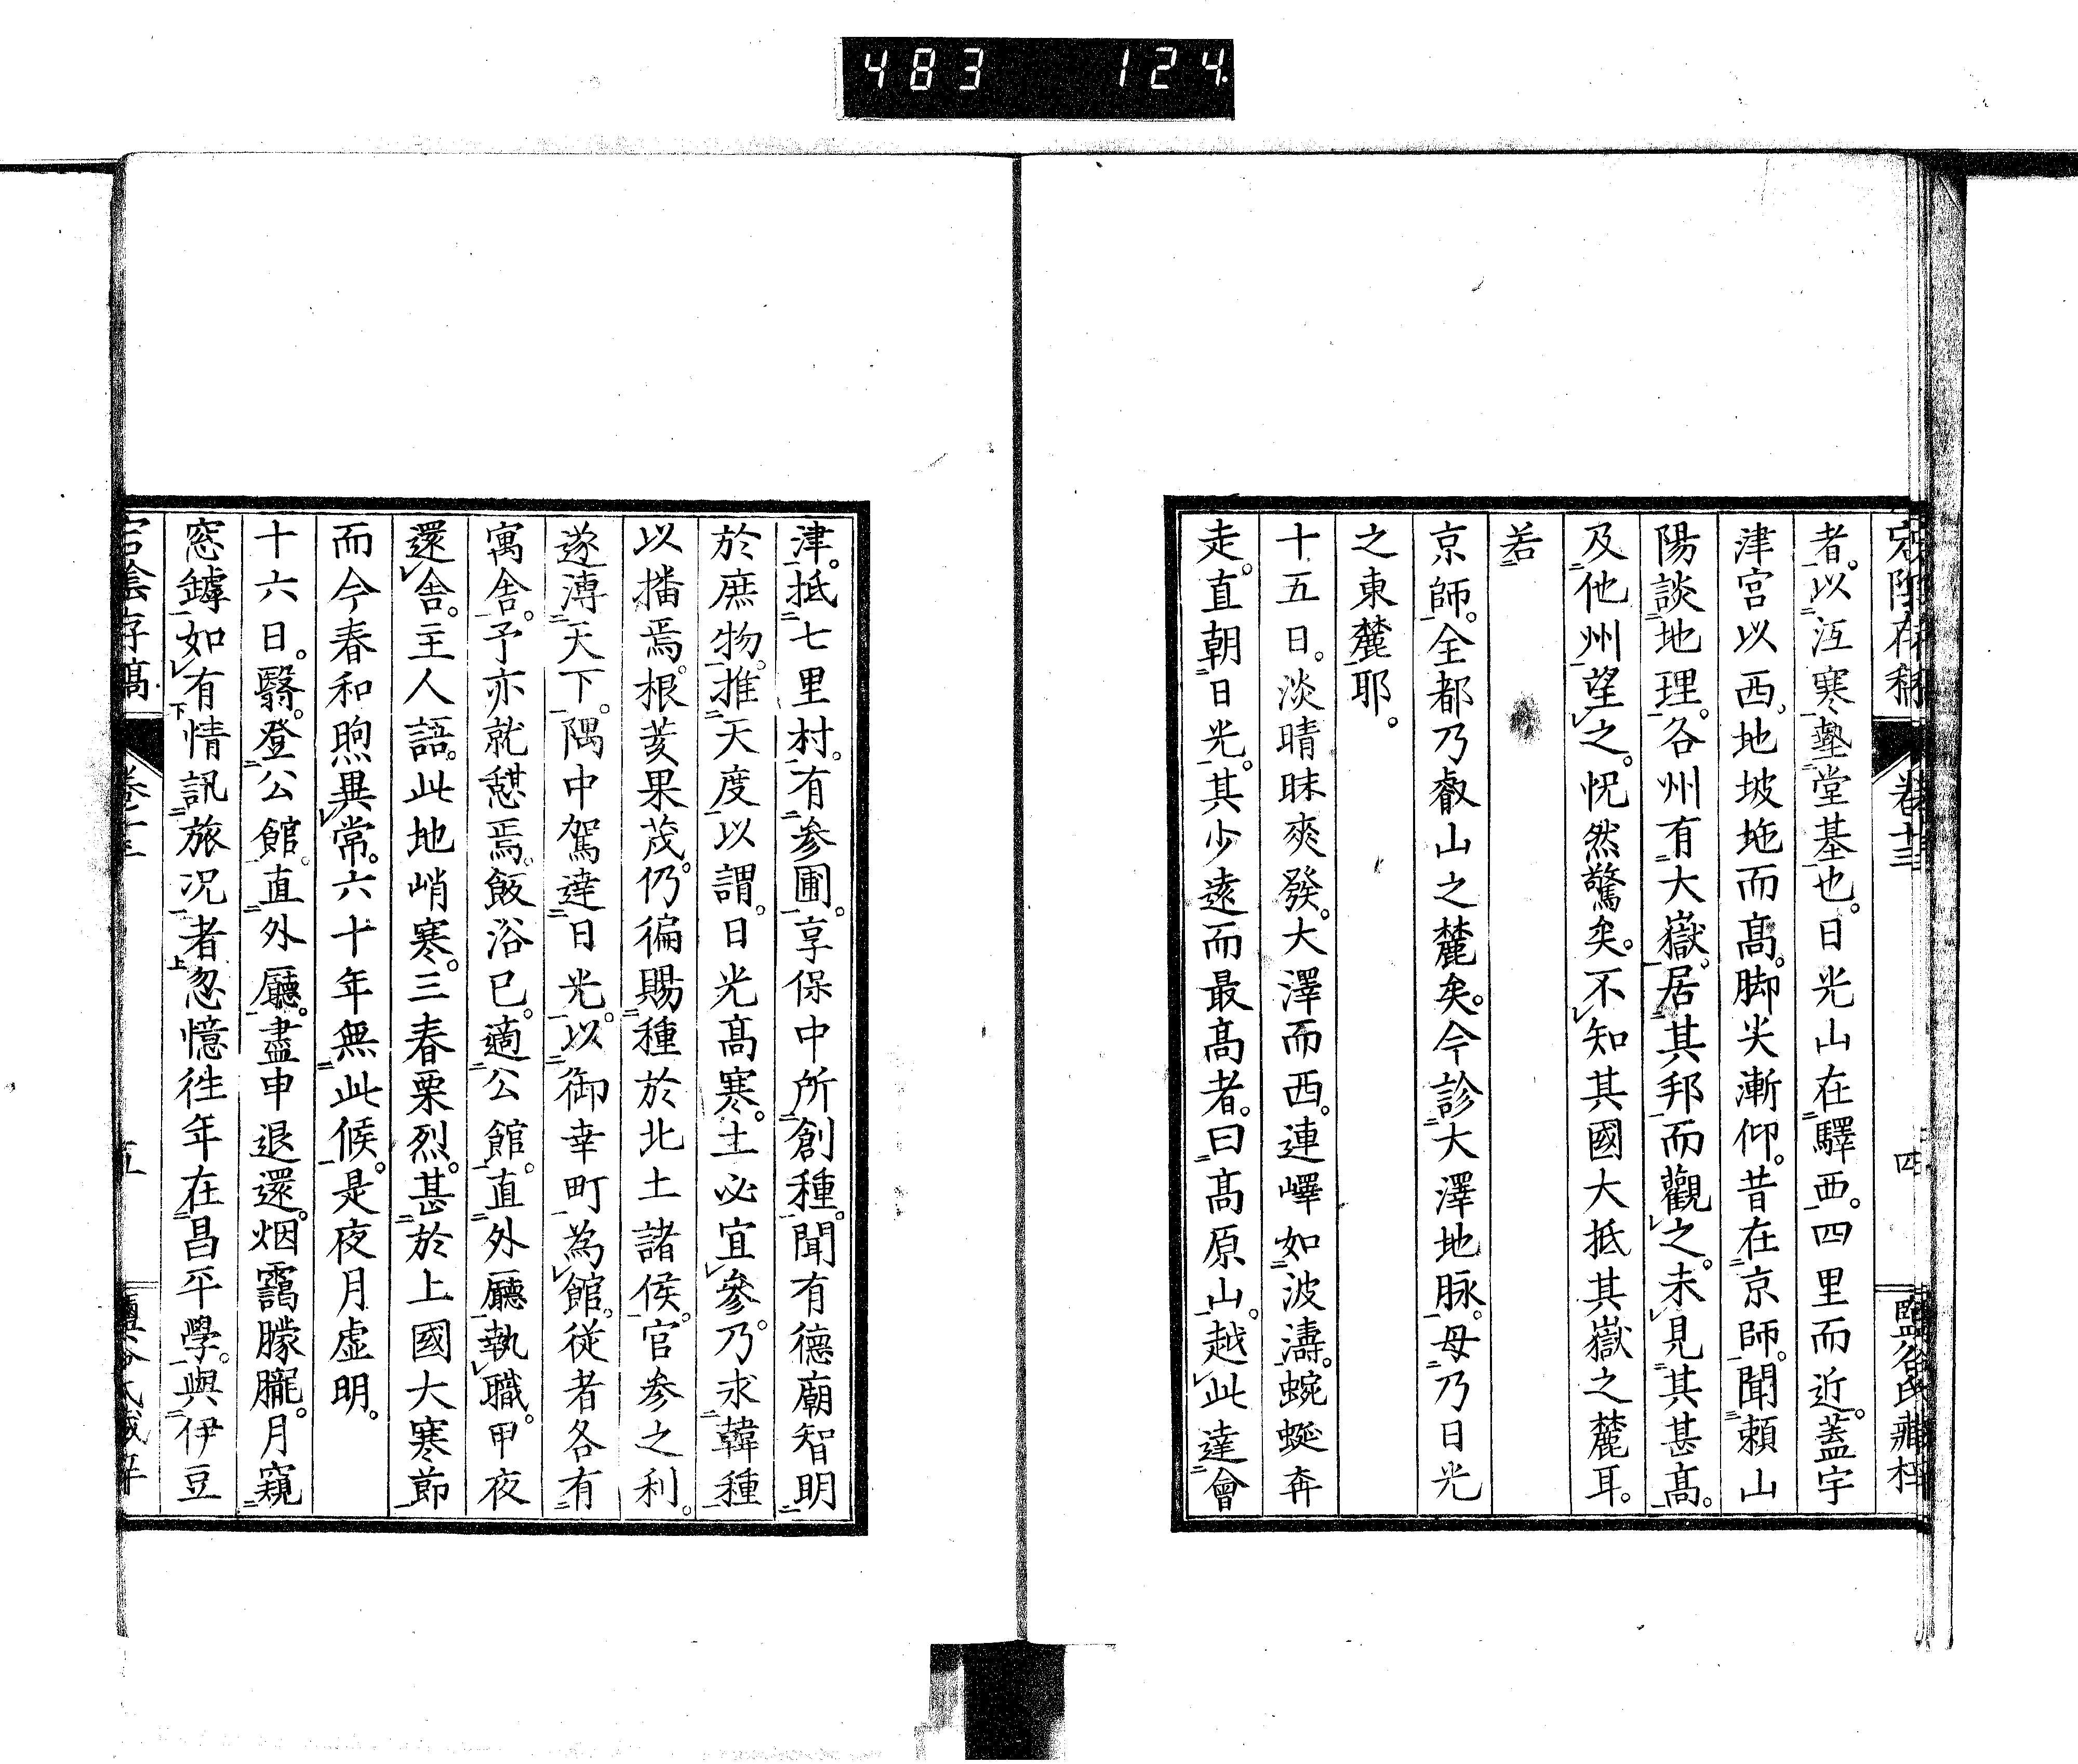 483 124
宕陰存稿 卷十三 四
者。以沍寒墊堂基也。日光山在驛西。四里而近。蓋宇
津宮以西。地坡𡊟而高。脚尖漸仰。昔在京師。聞賴山
陽談地理。各州有大嶽。居其邦而觀之。未見其甚高。
及他州望之。怳然驚矣。不知其國大抵其嶽之麓耳。
若
京師。全都乃叡山之麓矣。今診大澤地脉。毋乃日光
之東麓耶。
十五日。淡晴昧爽發。大澤而西。連嶧如波濤。蜿蜒奔
走。直朝日光。其少遠而最高者。曰高原山。越此達會
津。抵七里村。有參圃。享保中所創種。聞有德廟智明
於庶物。推天度以謂。日光高寒。土必宜參。乃求韓種
以播焉。根荄果茂。仍徧賜種於北土諸侯。官參之利。
遂溥天下。隅中駕達日光。以御幸町為館。從者各有
寓舍。予亦就憇焉。飯浴已。適公館。直外廳執職。甲夜
還舍。主人語。此地峭寒。三春栗烈。甚於上國大寒節
而今春和煦異常。六十年無此候。是夜月虛明。
十六日。翳。登公館。直外廳。盡申退還。烟靄朦朧。月窺
窓罅。如有情訊旅况者。忽憶徃年在昌平學。與伊豆
宕陰存稿 卷十三 五